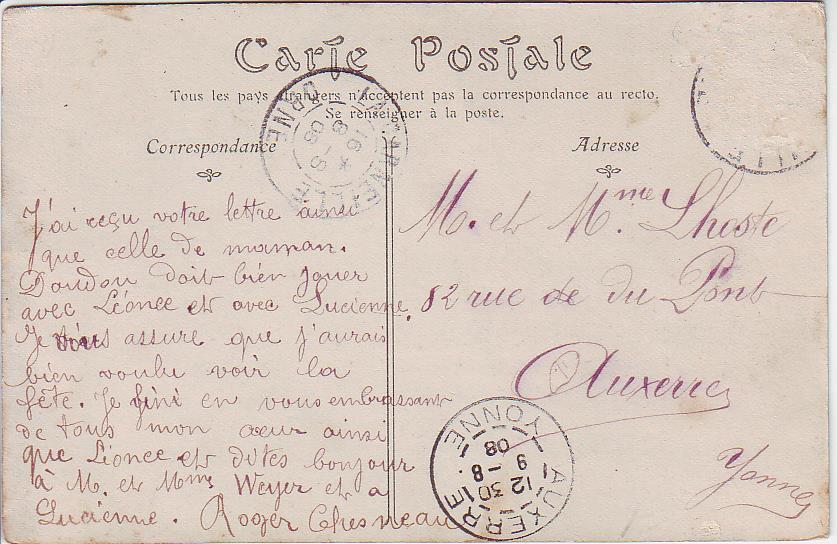 Carte Postale
Tous les pays étrangers n'acceptent pas la correspondance au recto.
Se renseigner à la poste.
Correspondance
Adresse
J'ai reçu votre lettre ainsi
que celle de maman.
Doudou doit bien jouer
avec Léonce et avec Lucienne.
Je vous assure que j'aurais
bien voulu voir la
fête. Je fini en vous embrassant
de tous mon cœur ainsi
que Léonce et dites bonjour
à M. et Mme Weyer et a
Lucienne. Roger Chesneau
M. et Mme Lhoste
82 rue de du Pont
Auxerre
Yonne
ORNE
16 - 8
08
AUXERRE
12 30
9 - 8
08
YONNE